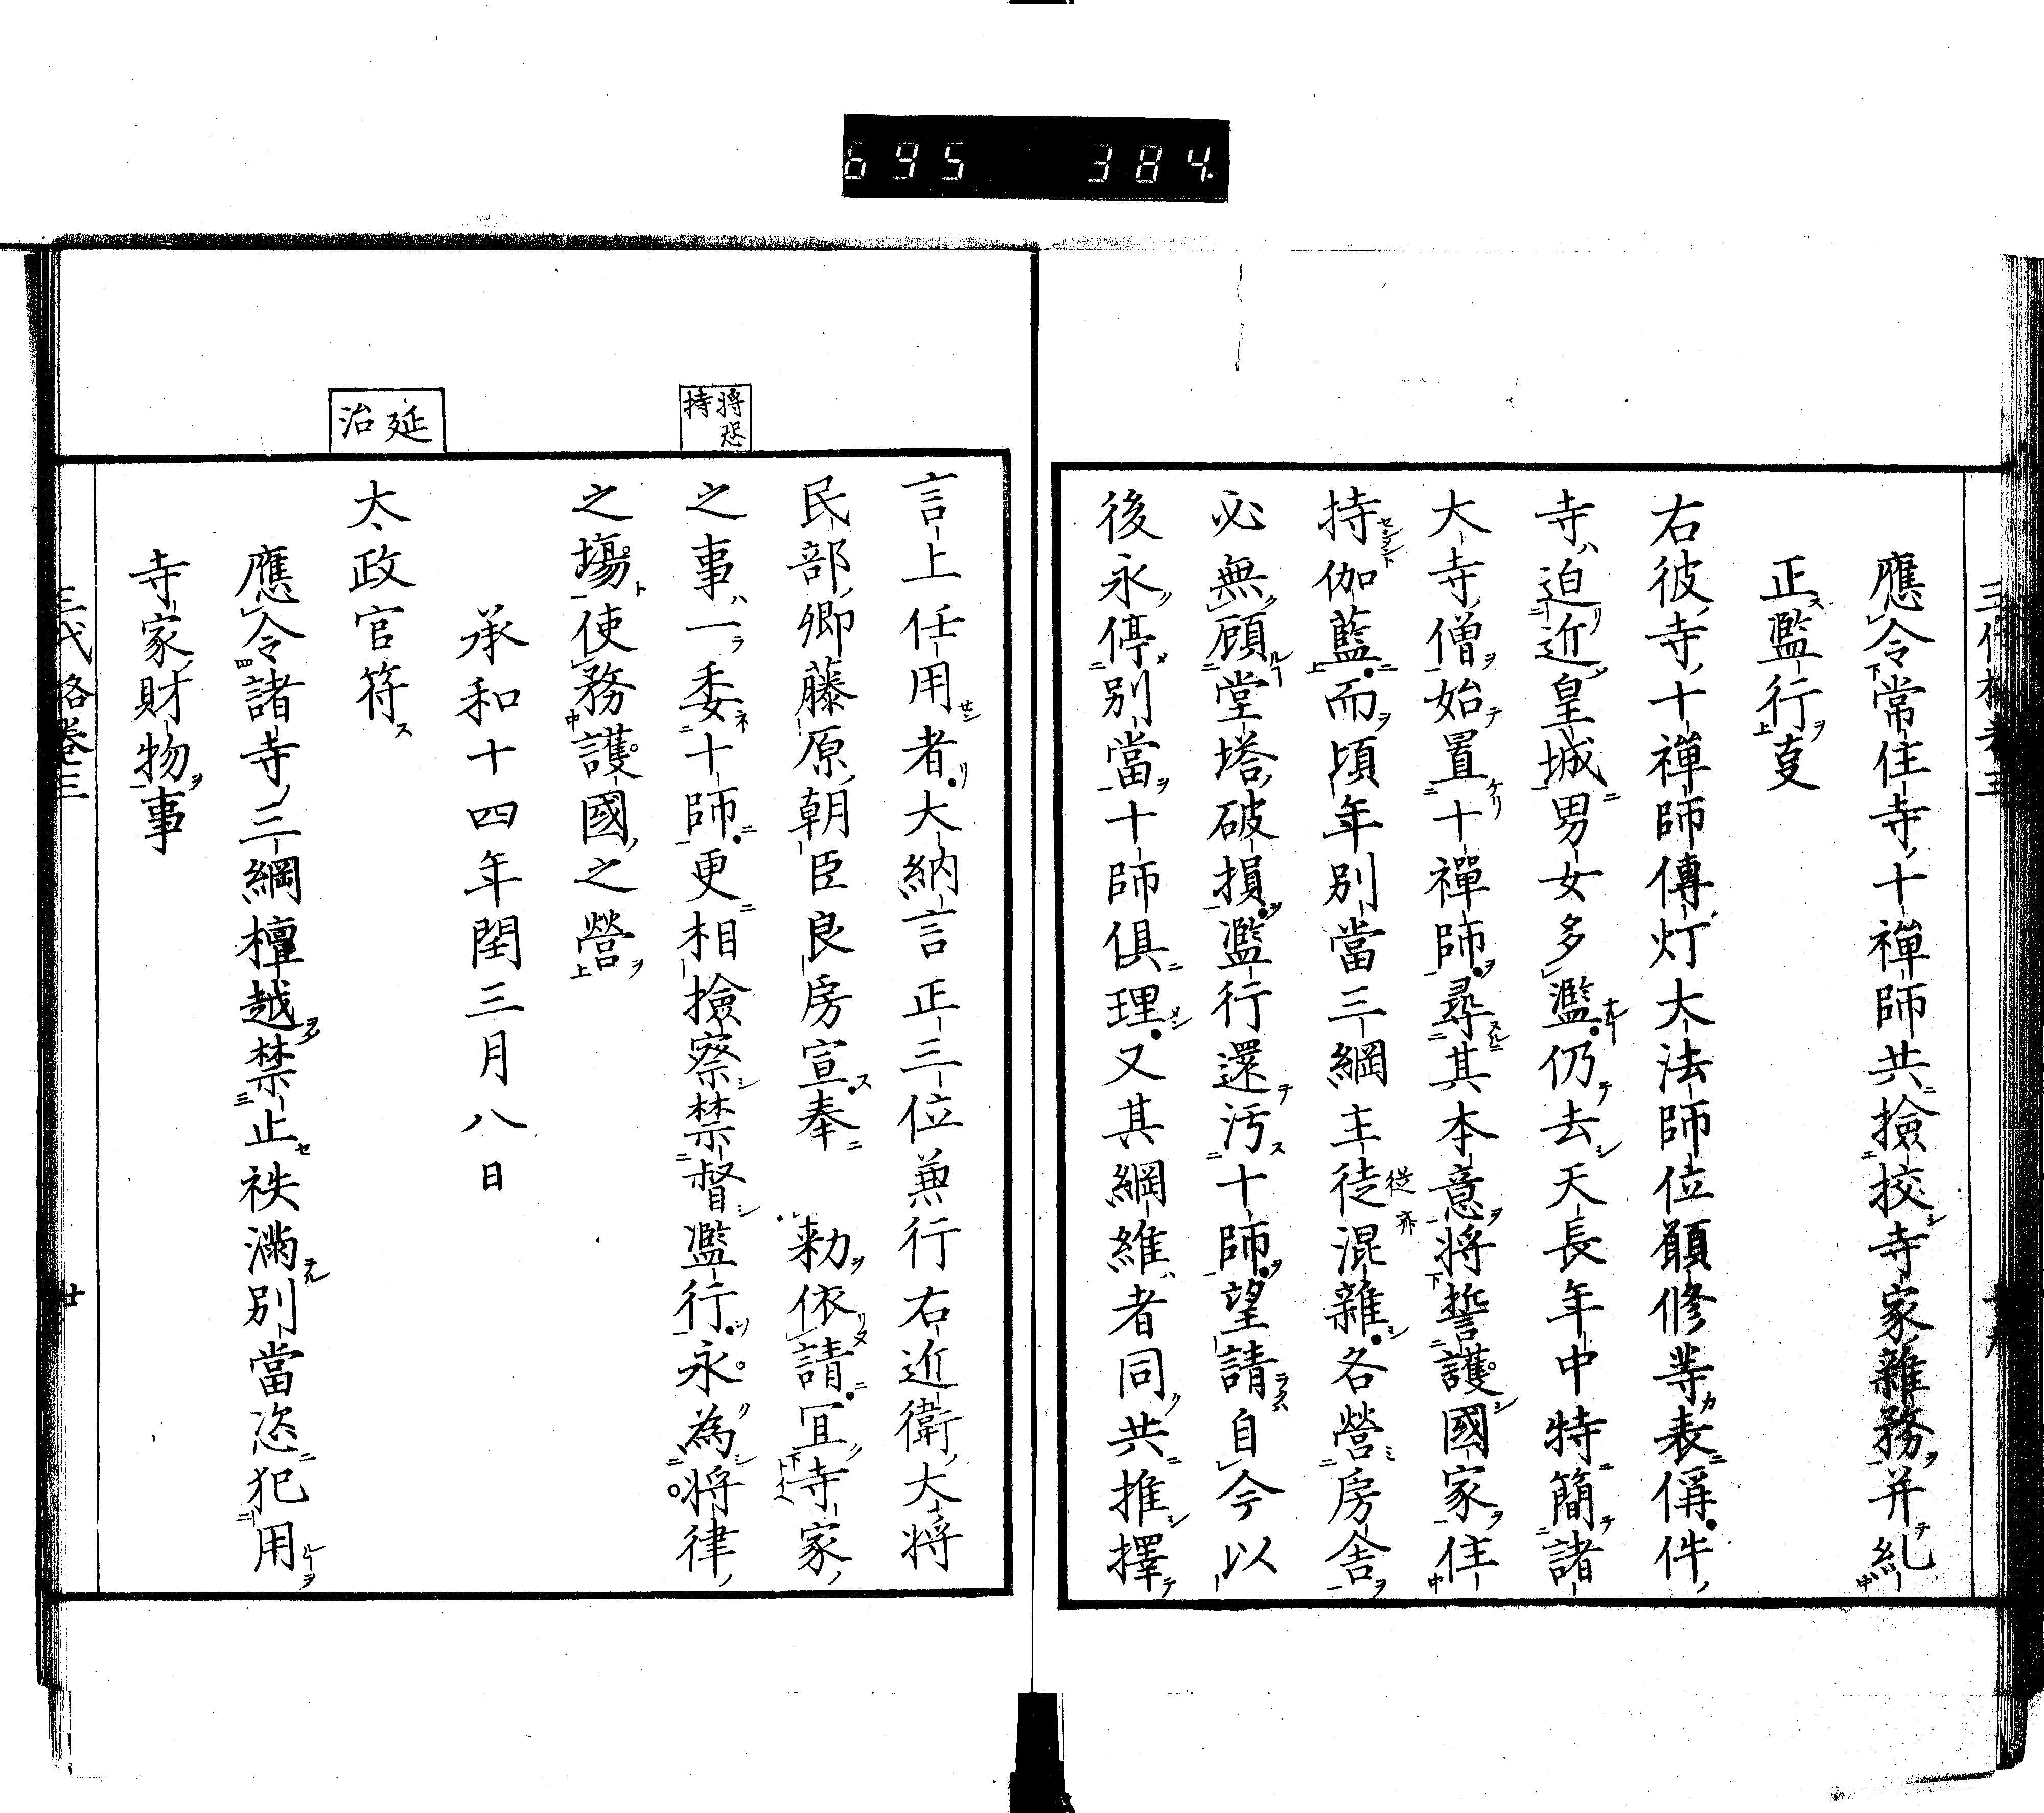 695 384.
應令常住寺十禪師共撿挍寺家雜務并糺
正濫行㕝
右彼寺十禪師傳灯大法師位願修等表偁件
寺迫近皇城男女多濫仍去天長年中特簡諸
大寺僧始置十禪師尋其本意將誓護國家住
持伽藍而頃年別當三綱主徒混雜各營房舎
必無顧堂塔破損濫行還汚十師望請自今以
後永停別當十師俱理又其綱維者同共推擇
言上任用者大納言正三位兼行右近衛大將
民部卿藤原朝臣良房宣奉　勅依請冝寺家
之事一委十師更相撿察禁督濫行永為将律
之場使務護國之營
承和十四年閏三月八日
太政官符
應令諸寺三綱檀越禁止袟滿別當恣犯用
寺家財物事
三代格卷三　廿
將恐
持
延
治